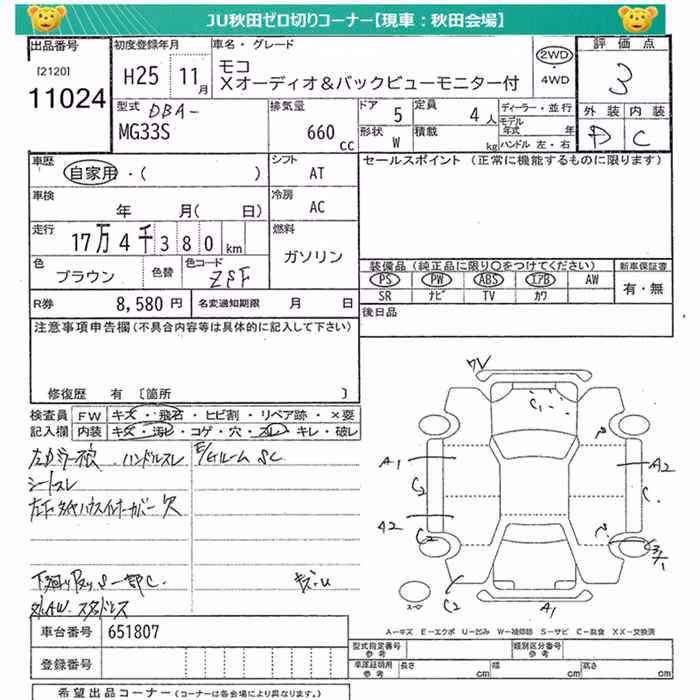 JU秋田ゼロ切りコーナー【現車：秋田会場】
出品番号
[2120]
11024
初度登録年月
H25 11月
車名・グレード
モコ
Xオーディオ＆バックビューモニター付
2WD
4WD
評価点
3
外装 内装
D C
型式 DBA-
MG33S
排気量
660 cc
ドア 5
定員 4人
形状 W
積載 kg
ディーラー・並行
モデル年式 年
ハンドル 左・右
車歴
自家用・( )
シフト
AT
セールスポイント（正常に機能するものに限ります）
車検
年 月( 日)
冷房
AC
走行
17万4千380km
燃料
ガソリン
色
ブラウン
色替
色コード
ZSF
装備品（純正品に限り〇をつけてください）
新車保証書
PS PW ABS エアB AW
有・無
SR ナビ TV カワ
R券 8,580円
名変通知期限 月 日
後日品
注意事項申告欄(不具合内容等は具体的に記入して下さい)
修復歴 有〔箇所 〕
検査員 FW キズ・飛石・ヒビ割・リペア跡・×要
記入欄 内装 キズ・汚レ・コゲ・穴・スレ・キレ・破レ
ハンドルスレ
E/Gルーム SC
シートスレ
左下タイヤハウスインナーカバー欠
下廻り S 一部C.
スタッドレス
車台番号 651807
登録番号
希望出品コーナー（コーナーは各会場により異なります。）
C1
A1
A2
C2
C
A2
C2
A1
A－キズ E－エクボ U－凹み W－補修跡 S－サビ C－腐食 XX－交換済
型式指定番号
参考
類別区分番号
参考
車庫証明用
参考
長さ cm 幅 cm 高さ cm